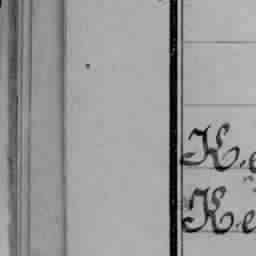 K.e
K.e